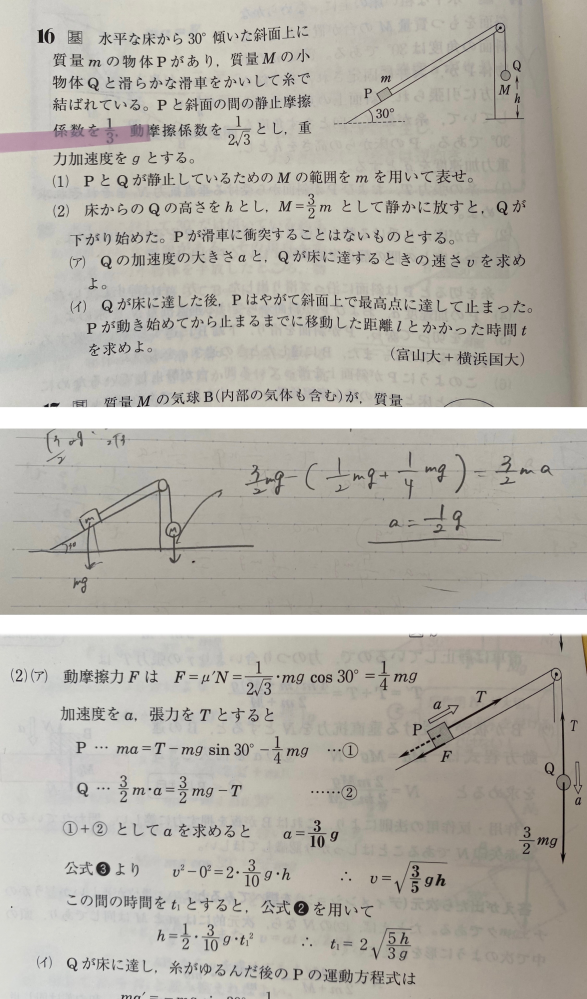 16 基 水平な床から30°傾いた斜面上に
質量mの物体Pがあり，質量Mの小
物体Qと滑らかな滑車をかいして糸で
結ばれている。Pと斜面の間の静止摩擦
係数を1/3，動摩擦係数を1/(2√3)とし，重
力加速度をgとする。
P m 30° Q M h
(1) PとQが静止しているためのMの範囲をmを用いて表せ。
(2) 床からのQの高さをhとし，M=3/2 mとして静かに放すと，Qが
下がり始めた。Pが滑車に衝突することはないものとする。
(ア) Qの加速度の大きさaと，Qが床に達するときの速さvを求め
よ。
(イ) Qが床に達した後，Pはやがて斜面上で最高点に達して止まった。
Pが動き始めてから止まるまでに移動した距離lとかかった時間t
を求めよ。
(富山大＋横浜国大)
質量Mの気球B(内部の気体も含む)が，質量
3/2 mg-(1/2 mg+1/4 mg)=3/2 ma
a=1/2 g
m M 30
mg
(2)(ア) 動摩擦力Fは F=μ'N=1/(2√3)・mg cos 30°=1/4 mg
加速度をa，張力をTとすると
P … ma=T-mg sin 30°-1/4 mg …①
Q … 3/2 m・a=3/2 mg-T ……②
①+② としてaを求めると a=3/10 g
公式❸より v²-0²=2・3/10 g・h ∴ v=√(3/5 gh)
この間の時間をt₁とすると，公式❷を用いて
h=1/2・3/10 g・t₁² ∴ t₁=2√(5h/3g)
(イ) Qが床に達し，糸がゆるんだ後のPの運動方程式は
a T P F T Q a 3/2 mg